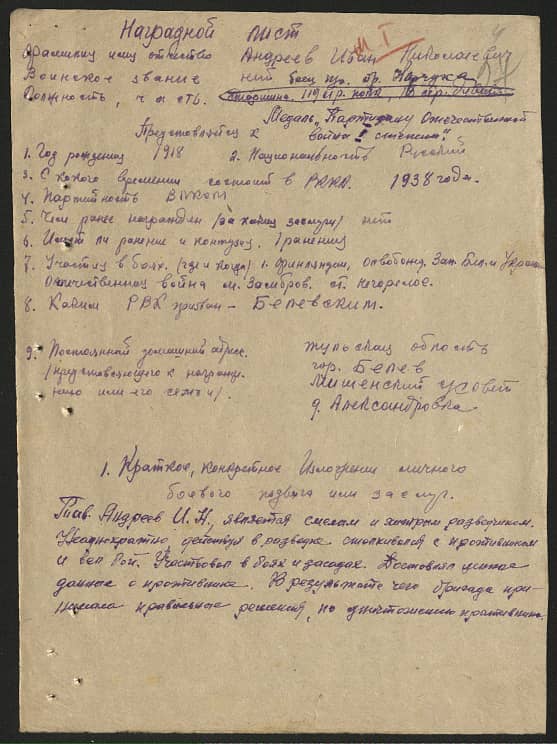 Наградной лист
4
М. I
Фамилия имя отчество Андреев Иван Николаевич
Воинское звание боец
Должность, часть. 119 стр. полк,
Медаль „Партизану Отечественной
Представляется к война II степени"
1. Год рождения 1918 2. Национальность Русский
3. С какого времени состоит в РККА. 1938 года.
4. Партийность ВЛКСМ
5. Чем ранее награжден /за какие заслуги/ нет
6. Имеет ли ранение и контузия. 1 ранение
7. Участие в боях. (где и когда) г. Финляндии, освобожд. Зап. Бел. и Украи
Отечественная война м. Замбров. ст. Негорелое.
8. Каким РВК призван – Белевским.
9. Постоянный домашний адрес. Тульская область
/представляющего к награжде- гор. Белев
нию или его семьи/. Мишенский с/совет
д. Александровка
1. Краткое, конкретное изложение личного
боевого подвига или заслуг.
Тов. Андреев И. Н., является смелым и хитрым разведчиком.
Неоднократно действуя в разведке сталкивался с противником
и вел бой. Участвовал в боях и засадах. Доставлял ценные
данные о противнике. В результате чего бригада при-
нимала правильные решения, по уничтожению противника.